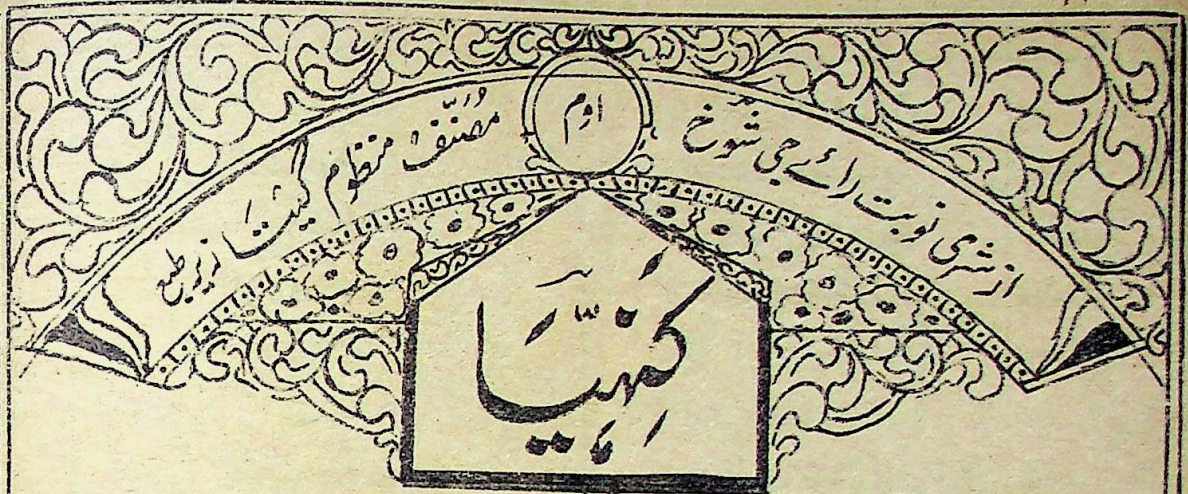 از شری نوبت رائے جی شوخ
اوم
مصنّف منظوم گیتا زیر طبع
کنہیّا